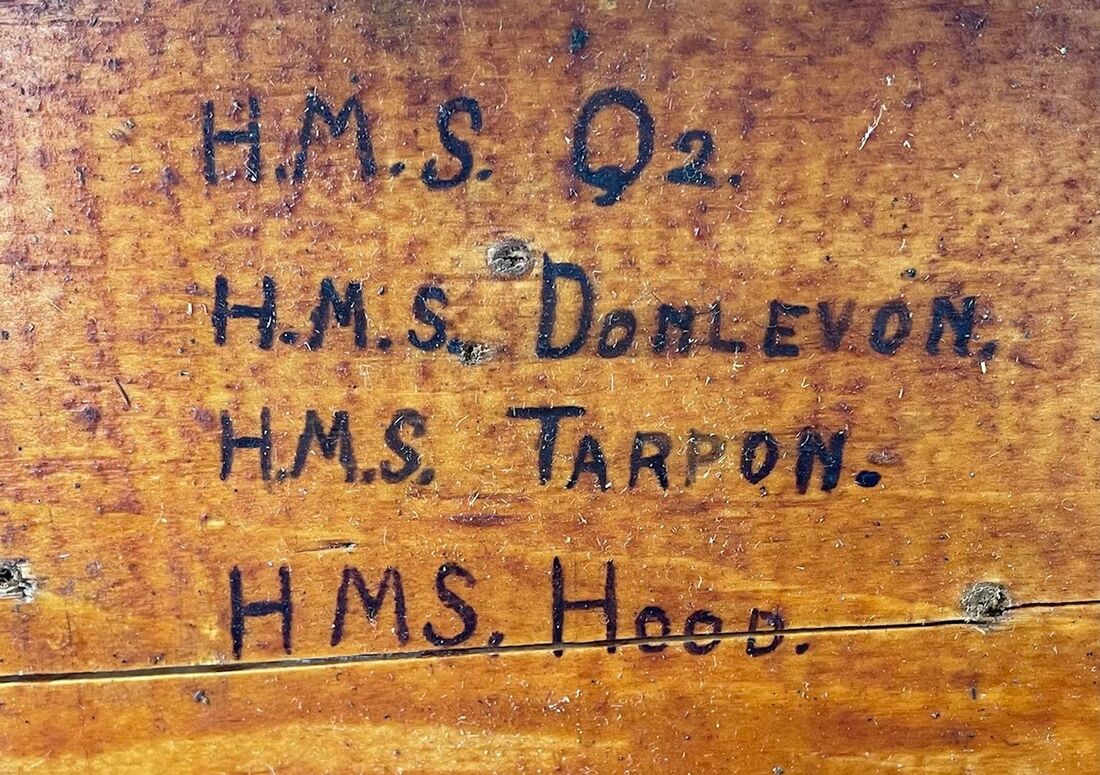 H.M.S. Q2.
H.M.S. DONLEVON.
H.M.S. TARPON.
H MS. HOOD.